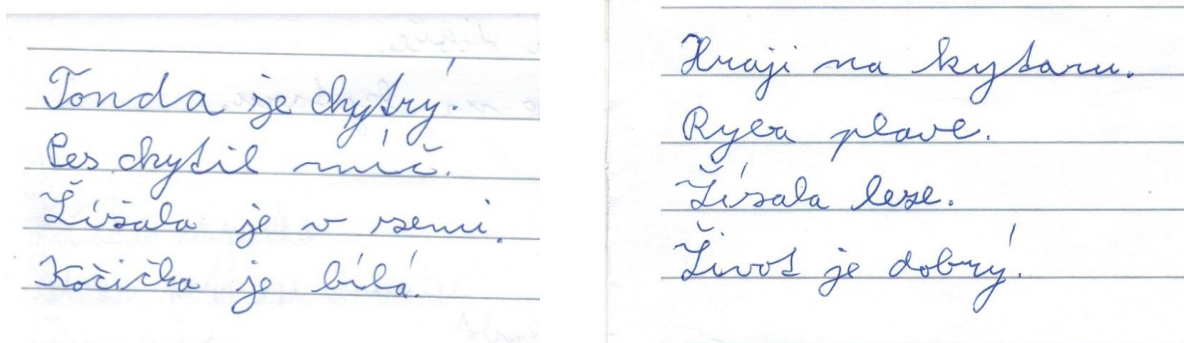 Tonda je chytrý.
Pes chytil míč.
Žížala je v zemi.
Kočička je bílá.
Hraji na kytaru.
Ryba plave.
Žízala leze.
Život je dobrý.